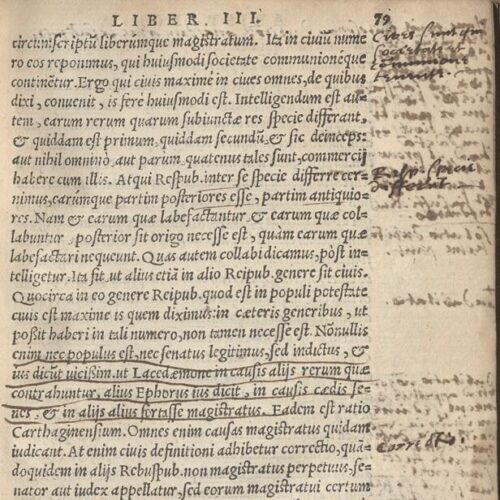 LIBER III. 79
circumscriptũ liberúmque magistratum. Ita in ciuiũ nume
ro eos reponimus, qui huiusmodi societate communioneque
continẽtur. Ergo qui ciuis maximè in ciues omnes, de quibus
dixi, conuenit, is ferè huiusmodi est. Intelligendum est au-
tem, earum rerum quarum subiunctæ res specie differant,
& quiddam est primum, quiddam secundũ, & sic deinceps:
aut nihil omninò, aut parum, quatenus tales sunt, commercij
habere cum illis. Atqui Respub. inter se specie differre cer-
nimus, earúmque partim posteriores esse, partim antiquio-
res. Nam & earum quæ labefactantur, & earum quæ col-
labuntur, posterior sit origo necesse est, quàm earum quæ
labefactari nequeunt. Quas autem collabi dicamus, pòst in-
telligetur. Ita fit, ut alius etiã in alio Reipub. genere sit ciuis.
Quocirca in eo genere Reipub. quod est in populi potestate
ciuis est maximè is quem diximus: in cæteris generibus, ut
poßit haberi in tali numero, non tamen necesse est. Nõnullis
enim nec populus est, nec senatus legitimus, sed indictus, &
ius dicũt uicißim. ut Lacedæmone in causis alijs rerum quæ
contrahuntur, alius Ephorus ius dicit, in causis cædis se-
nes: & in alijs alius fortasse magistratus. Eadem est ratio
Carthaginensium. Omnes enim causas magistratus quidam
iudicant. At enim ciuis definitioni adhibetur correctio, quã-
doquidem in alijs Rebuspub. non magistratus perpetuus, se-
nator aut iudex appellatur, sed eorum magistratui certum